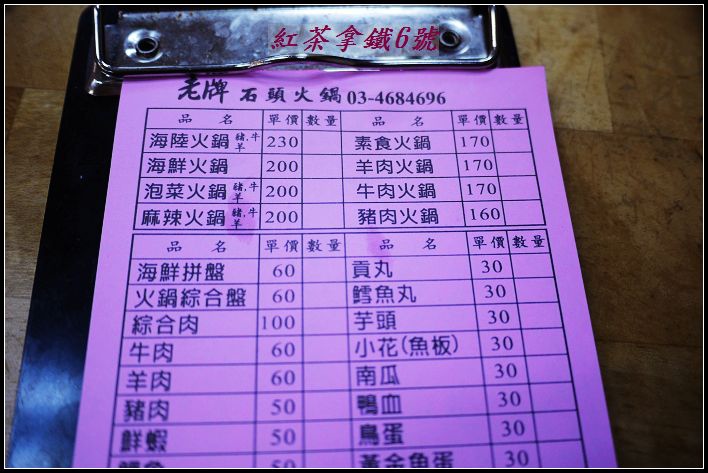 紅茶拿鐵6號
老牌 石頭火鍋 03-4684696
品 名 單價 數量 品 名 單價 數量
海陸火鍋 豬,牛 羊 230 素食火鍋 170
海鮮火鍋 200 羊肉火鍋 170
泡菜火鍋 豬,牛 羊 200 牛肉火鍋 170
麻辣火鍋 豬,牛 羊 200 豬肉火鍋 160
品 名 單價 數量 品 名 單價 數量
海鮮拼盤 60 貢丸 30
火鍋綜合盤 60 鱈魚丸 30
綜合肉 100 芋頭 30
牛肉 60 小花(魚板) 30
羊肉 60 南瓜 30
豬肉 50 鴨血 30
鮮蝦 50 鳥蛋 30
50 黃金魚蛋 30